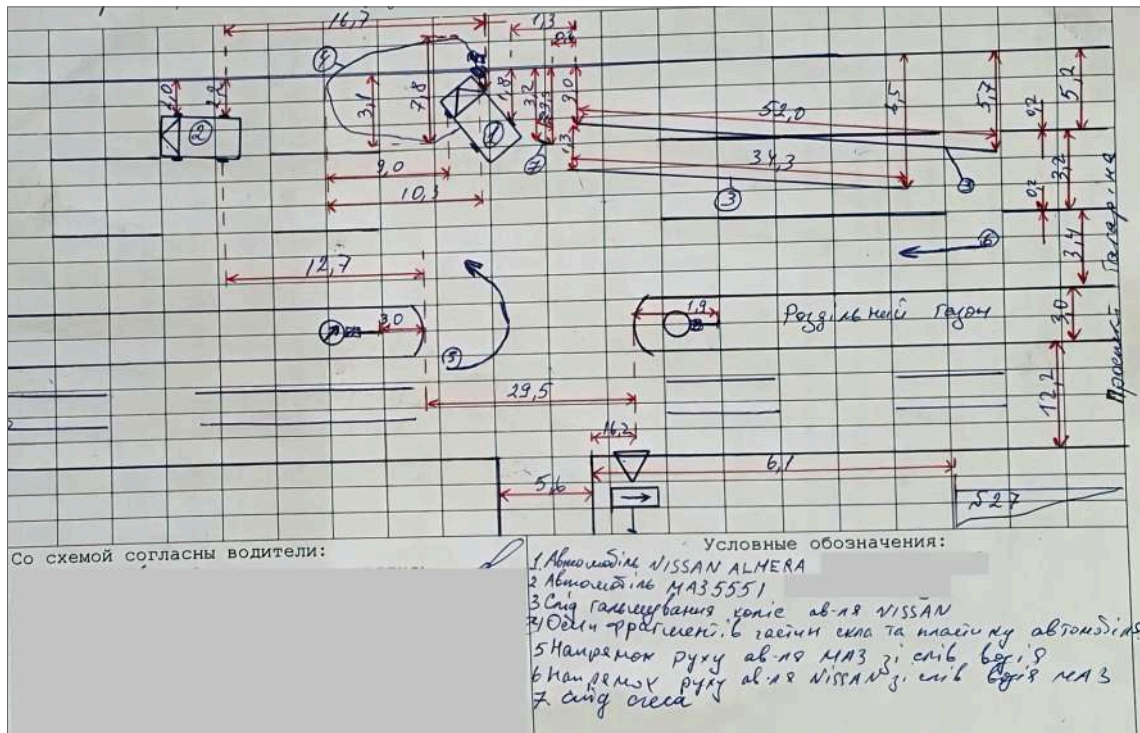 16,7
1,3
0,6
2,0
2,2
3,1
7,8
1,8
3,2
2,0
52,0
4,5
5,7
0,2
5,2
2
1
7
1,3
34,3
3
4
9,0
10,3
0,2
3,2
6
3,4
12,7
3,0
5
1,9
Роздільний газон
3,0
Проспект Гагаріна
29,5
12,2
16,2
6,1
5,6
№27
Со схемой согласны водители:
Условные обозначения:
1. Автомобіль NISSAN ALMERA
2 Автомобіль МАЗ5551
3 Слід гальмування коліс ав-ля NISSAN
4 Осип фрагментів частин скла та пластику автомобіля
5 Напрямок руху ав-ля МАЗ зі слів водія
6 Напрямок руху ав-ля NISSAN зі слів водія МАЗ
7. слід